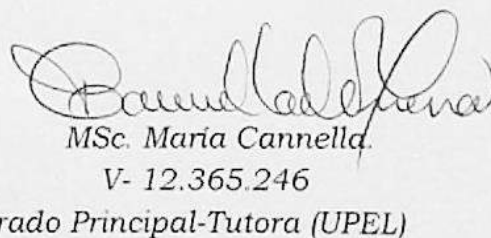 MSc. María Cannella.
V- 12.365.246
rado Principal-Tutora (UPEL)